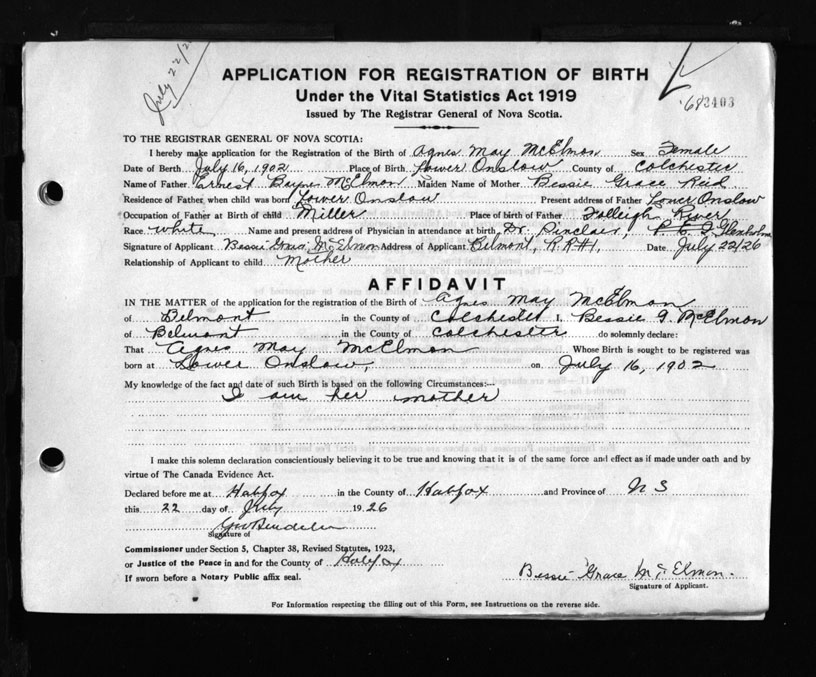 July 22/2
APPLICATION FOR REGISTRATION OF BIRTH
Under the Vital Statistics Act 1919
Issued by The Registrar General of Nova Scotia.
683403
TO THE REGISTRAR GENERAL OF NOVA SCOTIA:
I hereby make application for the Registration of the Birth of Agnes May McElmon Sex Female
Date of Birth July 16, 1902 Place of Birth Lower Onslow County of Colchester
Name of Father Ernest Bayne McElmon Maiden Name of Mother Bessie Grace Reid
Residence of Father when child was born Lower Onslow Present address of Father Lower Onslow
Occupation of Father at Birth of child Miller Place of birth of Father Folleigh River
Race white Name and present address of Physician in attendance at birth Dr. Sinclair, Glenholme
Signature of Applicant Bessie Grace McElmon Address of Applicant Belmont, R.R#1, Date July 22/26
Relationship of Applicant to child Mother
AFFIDAVIT
IN THE MATTER of the application for the registration of the Birth of Agnes May McElmon
of Belmont in the County of Colchester I, Bessie G. McElmon
of Belmont in the County of Colchester do solemnly declare:
That Agnes May McElmon Whose Birth is sought to be registered was
born at Lower Onslow, on July 16, 1902
My knowledge of the fact and date of such Birth is based on the following Circumstances:—
I am her mother
I make this solemn declaration conscientiously believing it to be true and knowing that it is of the same force and effect as if made under oath and by
virtue of The Canada Evidence Act.
Declared before me at Halifax in the County of Halifax and Province of N S
this 22 day of July 1926
Signature of
Commissioner under Section 5, Chapter 38, Revised Statutes, 1923,
or Justice of the Peace in and for the County of Halifax
If sworn before a Notary Public affix seal.
Bessie Grace McElmon.
Signature of Applicant.
For Information respecting the filling out of this Form, see Instructions on the reverse side.